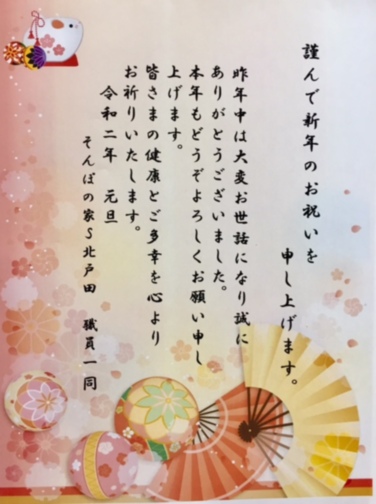 謹んで新年のお祝いを
申し上げます。
昨年中は大変お世話になり誠に
ありがとうございました。
本年もどうぞよろしくお願い申し
上げます。
皆さまの健康とご多幸を心より
お祈りいたします。
令和二年 元旦
そんぽの家S北戸田 職員一同